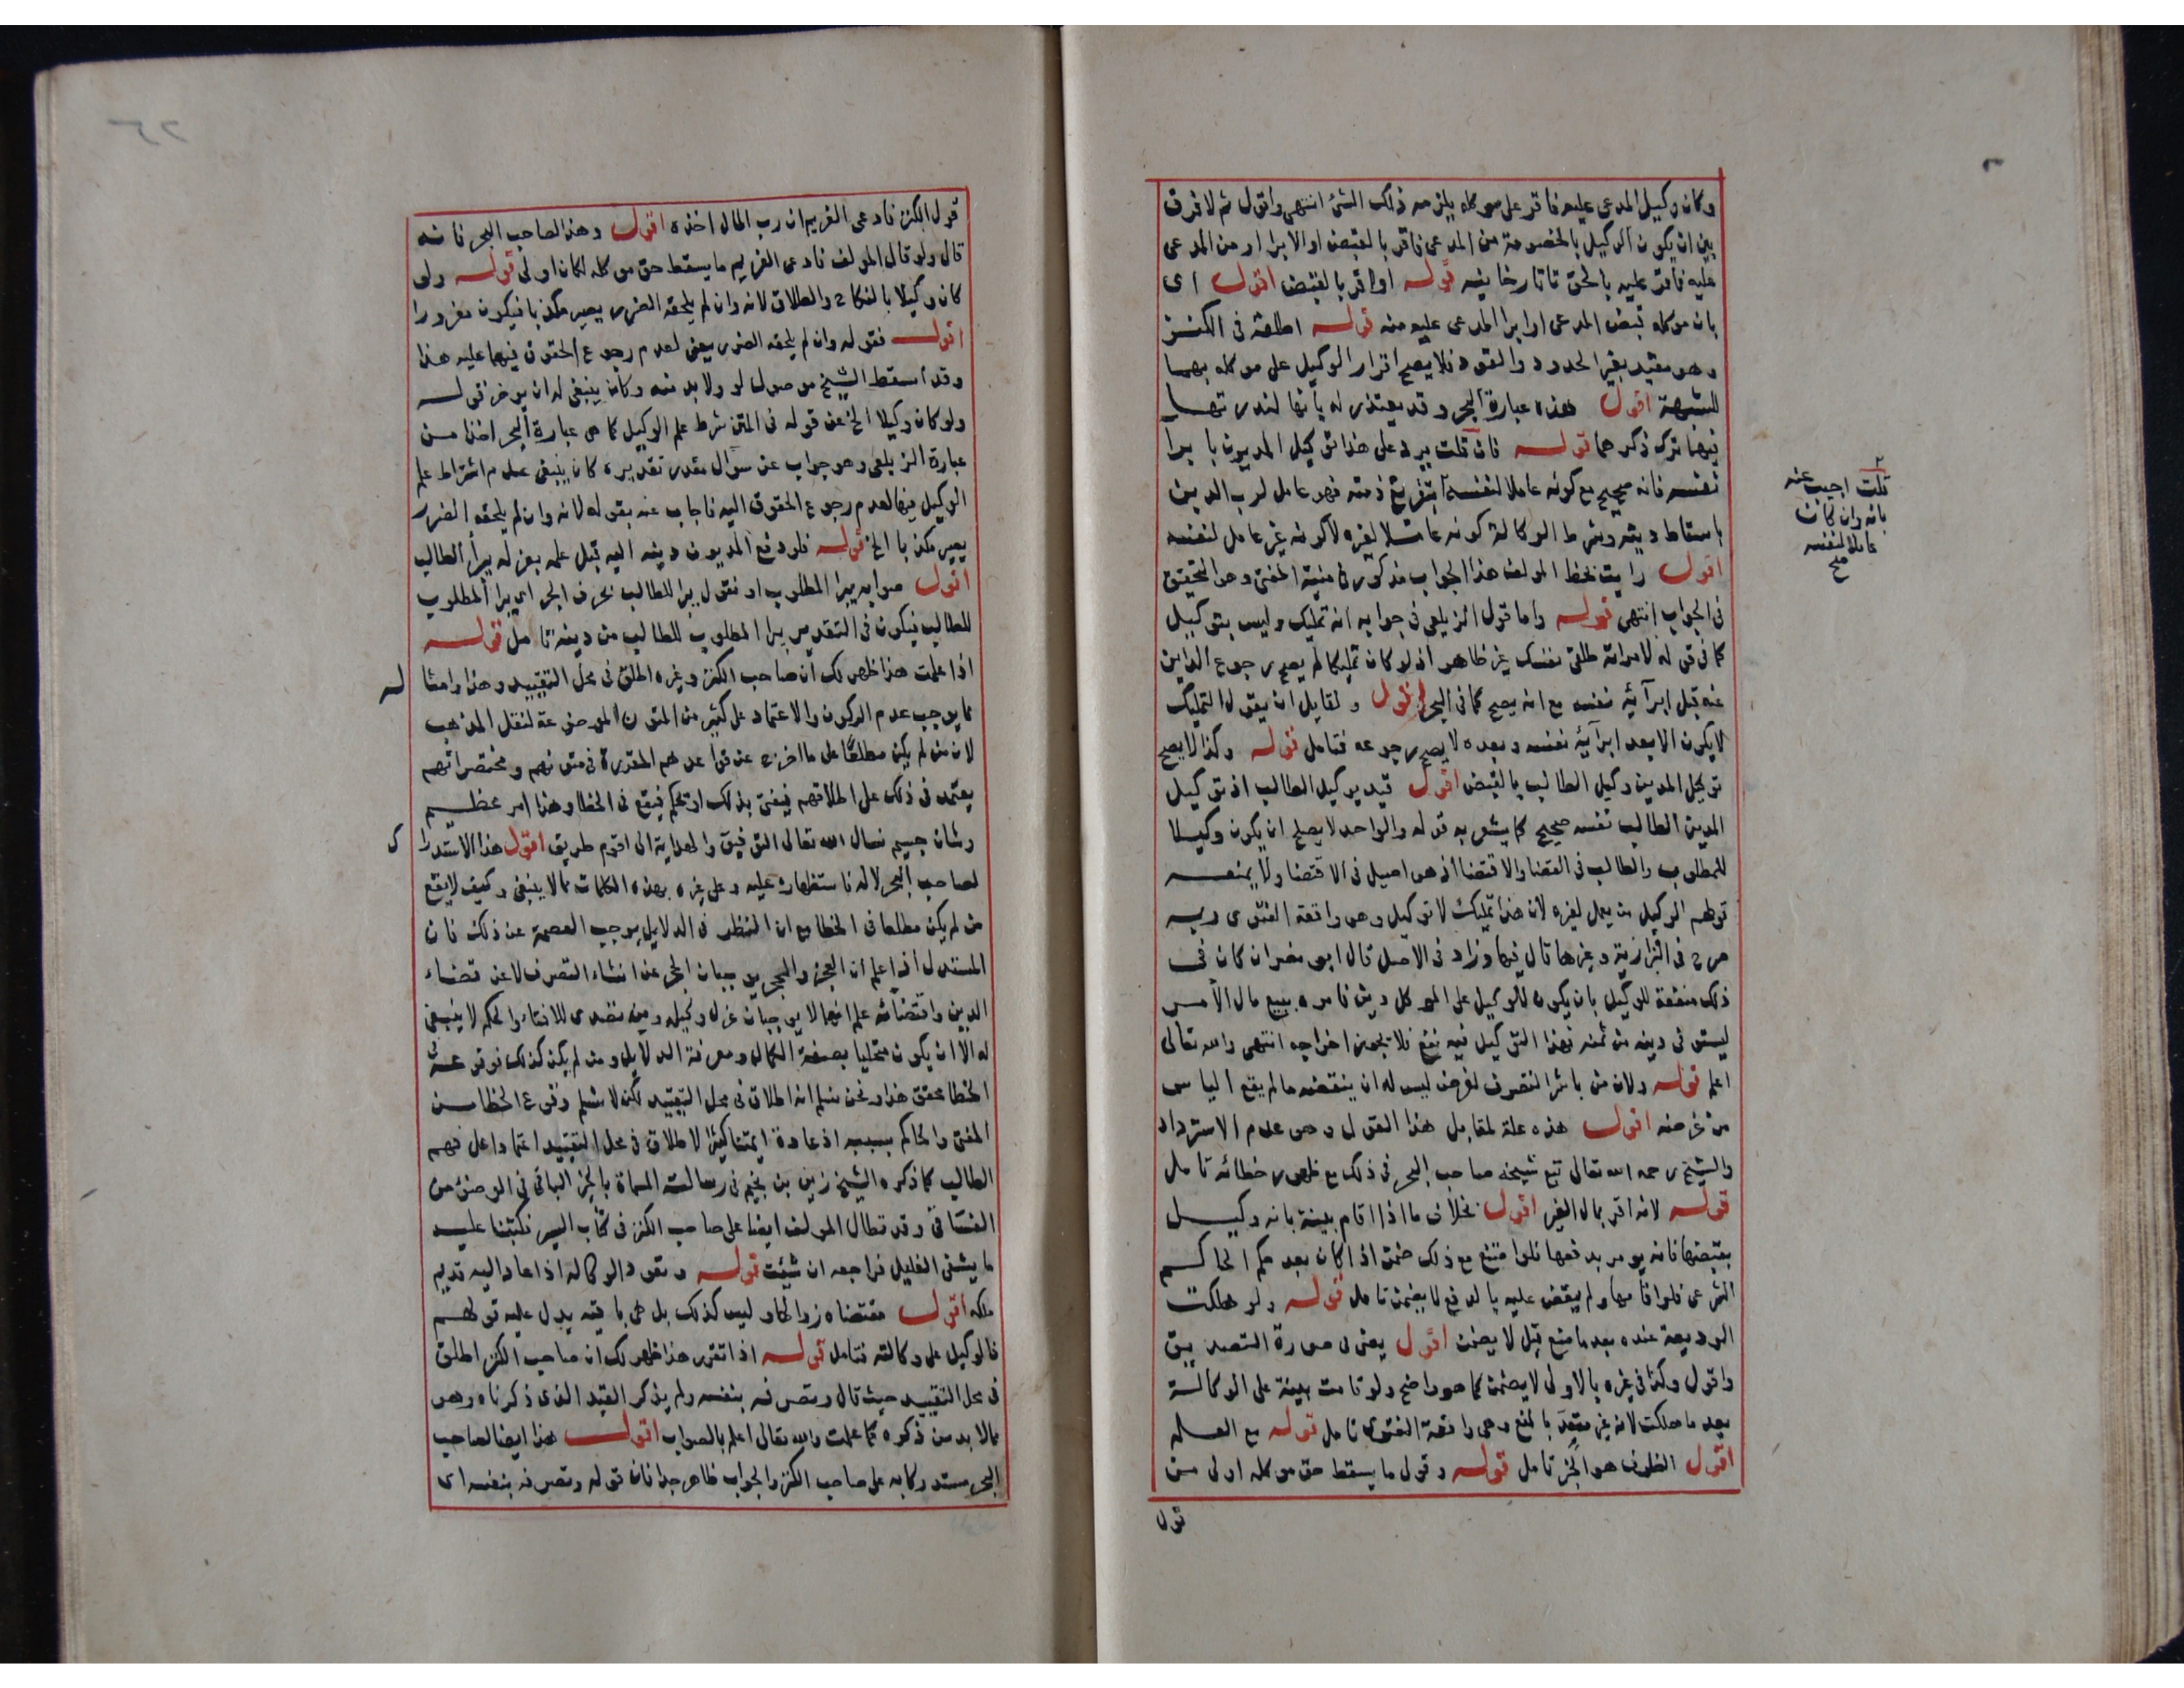 وكان وكيل المدعى عليه فاقر على موكله يلزمه ذلك الشئ انتهى واقول ثم لا فرق
بين ان يكون الوكيل بالخصومة من المدعى فاقر بالقبض او الابرا او من المدعى
عليه فاقر عليه بالحق تاتارخانيه قوله او اقر بالقبض اقول اى
بان موكله قبض المدعى او ابرا المدعى عليه منه قوله اطلقه فى الكنز
وهو مقيد بغير الحدود والقود فلا يصح اقرار الوكيل على موكله بهما
للشبهة اقول هذه عبارة البحر وقد يعتذر له بانها لندرتها
فيها ترك ذكرهما قوله فان قلت يرد على هذا توكيل المديون بابرا
نفسه فانه صحيح مع كونه عاملا لنفسه بتفريغ ذمته فهو عامل لرب الدين
باسقاط دينه وشرط الوكالة كونه عاملا لغيره لا كونه غير عامل لنفسه
اقول رايت بخط المولف هذا الجواب مذكور فى منية المفتى وهو التحقيق
فى الجواب انتهى قوله واما قول الزيلعى فى جوابه انه تمليك وليس بتوكيل
كما فى قوله لامراته طلقى نفسك غير ظاهر اذ لو كان تمليكا لم يصح رجوع الداين
عنه قبل ابرائه نفسه مع انه يصح كما فى البحر اقول ولقايل ان يقول التمليك
لا يكون الا بعد ابرائه نفسه وبعده لا يصح رجوعه فتامل قوله وكذا لا يصح
توكيل المدين وكيل الطالب بالقبض اقول قيد بوكيل الطالب اذ توكيل
المدين الطالب نفسه صحيح كما يشعر به قوله والواحد لا يصلح ان يكون وكيلا
للمطلوب والطالب فى القضا والاقتضا اذ هو اصيل فى الاقتضا ولا يمنعه
قولهم الوكيل من يعمل لغيره لان هذا تمليك لا توكيل وهى واقعة الفتوى وبه
صرح فى البزازية وغيرها قال فيها وزاد فى الاصل قال ابو نصر ان كان فى
ذلك منفعة للوكيل بان يكون للوكيل على الموكل دين فامره ببيع مال الامر
ليستوفى دينه من ثمنه فهذا التوكيل فيه نفع فلا يجوز اخراجه انتهى والله تعالى
اعلم قوله ولان من باشر التصرف لغرض ليس له ان ينقضه ما لم يقع الياس
من غرضه اقول هذه علة لمقابل هذا القول وهو عدم الاسترداد
والشيخ رحمه الله تعالى تبع شيخه صاحب البحر فى ذلك مع ظهور خطائه تامل
قوله لانه اقر بمال الغير اقول بخلاف ما اذا اقام بينة بانه وكيل
بقبضها فانه يومر بدفعها فلو امتنع مع ذلك ضمن اذا كان بعد حكم الحاكم
الشرعى فلو اقامها ولم يقض عليه بالدفع لا يضمن تامل قوله ولو هلكت
الوديعة عنده بعد ما منع قيل لا يضمن اقول يعنى فى صورة التصديق
واقول وكذا فى غيره بالاولى لا يضمن كما هو واضح ولو قامت بينة على الوكالة
بعد ما هلكت لانه غير متعد بالمنع وهى واقعة الفتوى تامل قوله مع العلم
اقول الظرف هو الخبر تامل قوله وقول ما يسقط حق موكله اولى من
قول
قلت اجيب عنه
بانه وان كان
عاملا لنفسه
صح
قول الكنز فادعى الغريم ان رب المال اخذه اقول وهذا لصاحب البحر فانه
قال ولو قال المولف فادعى الغريم ما يسقط حق موكله لكان اولى قوله ولو
كان وكيلا بالنكاح والطلاق لانه وان لم يلحقه الضرر يصير مكذبا فيكون مغرورا
اقول فقوله وان لم يلحقه الضرر يعنى لعدم رجوع الحقوق فيهما عليه هذا
وقد اسقط الشيخ موصول لو ولا بد منه وكان ينبغى له ان يوخر قوله
ولو كان وكيلا الخ عن قوله فى المتن شرط علم الوكيل كما هى عبارة البحر اخذا من
عبارة الزيلعى وهو جواب عن سوال مقدر تقديره كان ينبغى عدم اشتراط علم
الوكيل فيها لعدم رجوع الحقوق اليه فاجاب عنه بقوله لانه وان لم يلحقه الضرر
يصير مكذبا الخ قوله فلو دفع المديون دينه اليه قبل علمه بعزله يبرأ الطالب
اقول صوابه يبرا المطلوب او نقول يبرا للطالب بحرف الجر اى يبرا المطلوب
للطالب فيكون فى التقدير يبرا المطلوب للطالب من دينه تامل قوله
اذا علمت هذا ظهر لك ان صاحب الكنز وغيره اطلق فى محل التقييد وهذا وامثاله
مما يوجب عدم الركون والاعتماد على كثير من المتون الموضوعة لنقل المذهب
لان من لم يكن مطلعا على ما اخرج عن قواعدهم المقررة فى متونهم ومختصراتهم
يعتمد فى ذلك على اطلاقهم فيفتى بذلك او يحكم فيقع فى الخطا وهذا امر عظيم
وشان جسيم نسال الله تعالى التوفيق والهداية الى اقوم طريق اقول هذا الاستدراك
لصاحب البحر لا له فاستظهاره عليه وعلى غيره بهذه الكلمات مما لا ينبغى وكيف لا يقع
من لم يكن مطلعا فى الخطا مع ان النظر فى الدلايل يوجب العصمة عن ذلك فان
المستدل اذا علم ان العجز والحجر يوجبان الحجر عن انشاء التصرف لا عن قضاء
الدين واقتضائه علم انهما لا يوجبان عزل وكيله ومن تصدى للافتاء والحكم لا ينبغى
له الا ان يكون متحليا بصفة الكمال ومعرفة الدلايل ومن لم يكن كذلك فوقوعه فى
الخطا محقق هذا ونحن نسلم انه اطلاق فى محل التقييد لكن لا نسلم وقوع الخطا من
المفتى والحاكم بسببه اذ عادة ايمتنا كثيرا الاطلاق فى محل التقييد اعتمادا على فهم
الطالب كما ذكره الشيخ زين بن نجيم فى رسالته المسماة بالخير الباقى فى الوضوء من
الفساقى وقد تطال المولف ايضا على صاحب الكنز فى كتاب السير فكتبنا عليه
ما يشفى الغليل فراجعه ان شئت قوله وتعود الوكالة اذا عاد اليه قديم
ملكه اقول مقتضاه زوالها وليس كذلك بل هى باقيه يدل عليه قولهم
فالوكيل على وكالته فتامل قوله اذا تقرر هذا ظهر لك ان صاحب الكنز اطلق
فى محل التقييد حيث قال وتصرفه بنفسه ولم يذكر القيد الذى ذكرناه وهو
مما لا بد من ذكره كما علمت والله تعالى اعلم بالصواب اقول هذا ايضا لصاحب
البحر مستدركا به على صاحب الكنز والجواب ظاهر جدا فان قوله وتصرفه بنفسه اى